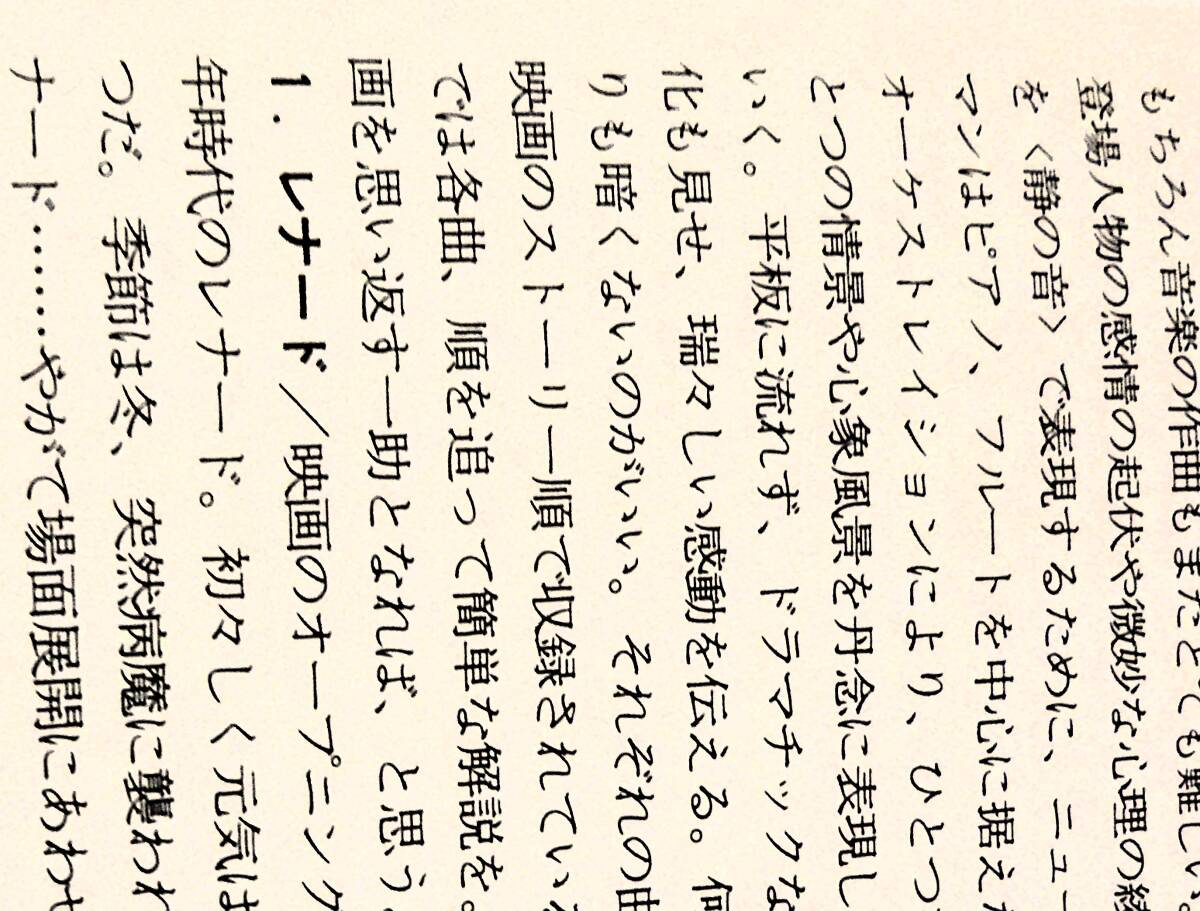 もちろん音楽の作曲もまたとても難しい。
登場人物の感情の起伏や微妙な心理の
を〈静の音〉で表現するために、ニュー
マンはピアノ、フルートを中心に据え
オーケストレイションにより、ひとつ
とつの情景や心象風景を丹念に表現し
いく。平板に流れず、ドラマチックな
化も見せ、瑞々しい感動を伝える。何
りも暗くないのがいい。それぞれの曲
映画のストーリー順で収録されている
では各曲、順を追って簡単な解説を。
画を思い返す一助となれば、と思う。
1. レナード／映画のオープニング
年時代のレナード。初々しく元気は
つだ。季節は冬、突然病魔に襲われ
ナード………やがて場面展開にあわせ